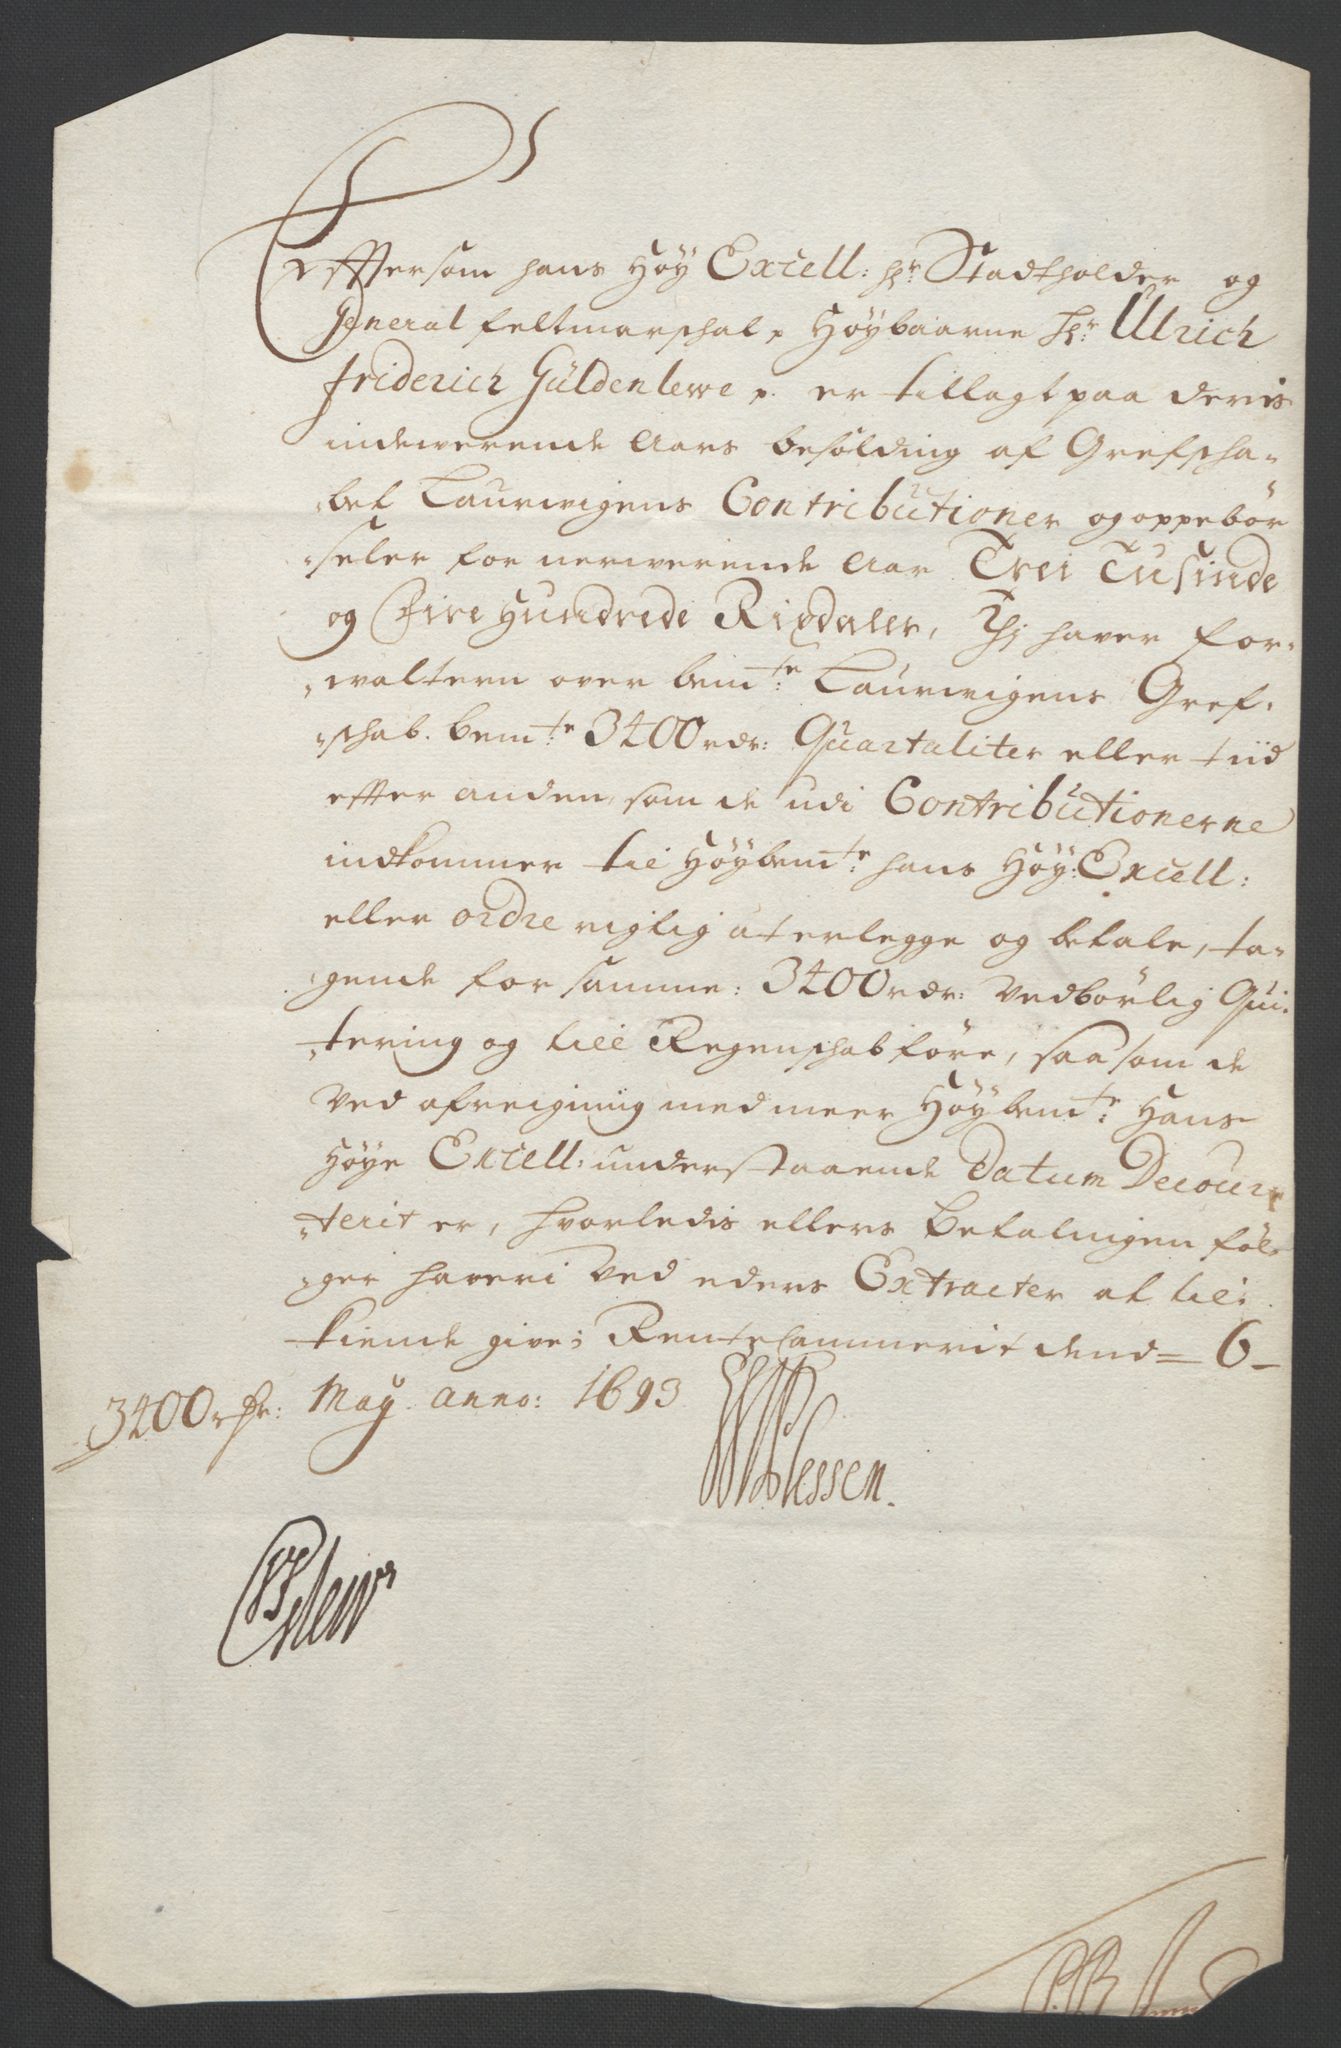 Effersom hans Höÿ Excell: Hr: Stadtholder og
General feltmarschal p Höÿbaarne Hr: Ulrich
friderich Güldenlewe p. er tillagt paa deris
indewerende Aars besolding af Grefscha-
bet Laurwigens Contributioner og oppebör
seler for nerwerende Aar Trei Tusinde
og Fire Hundrede Rixdaler, Thj haver for-
waltern over bemte: Laurwigens Gref-
schab. bemte: 3400 rdr: Quartaliter eller tiid
effter anden, som de udi Contributionerne
indkommer til Höÿbemte: hans Höÿ: Excell:
eller ordre rigtig at erlegge og betale, ta-
gende for samme: 3400 rdr: Vedbörlig Qui-
tering og till Regenschab före, saasom de
Ved afreigning med meer Höÿbemte: Hans
Höÿe Excell: understaaende Datum Decour
terit er, hvorledis ellers Betalingen föl-
ger haver i Ved eders Extracter at til-
kiende give; RenteCammerit dend 6
3400 rdr: Maÿ. anno: 1693
Plessen.